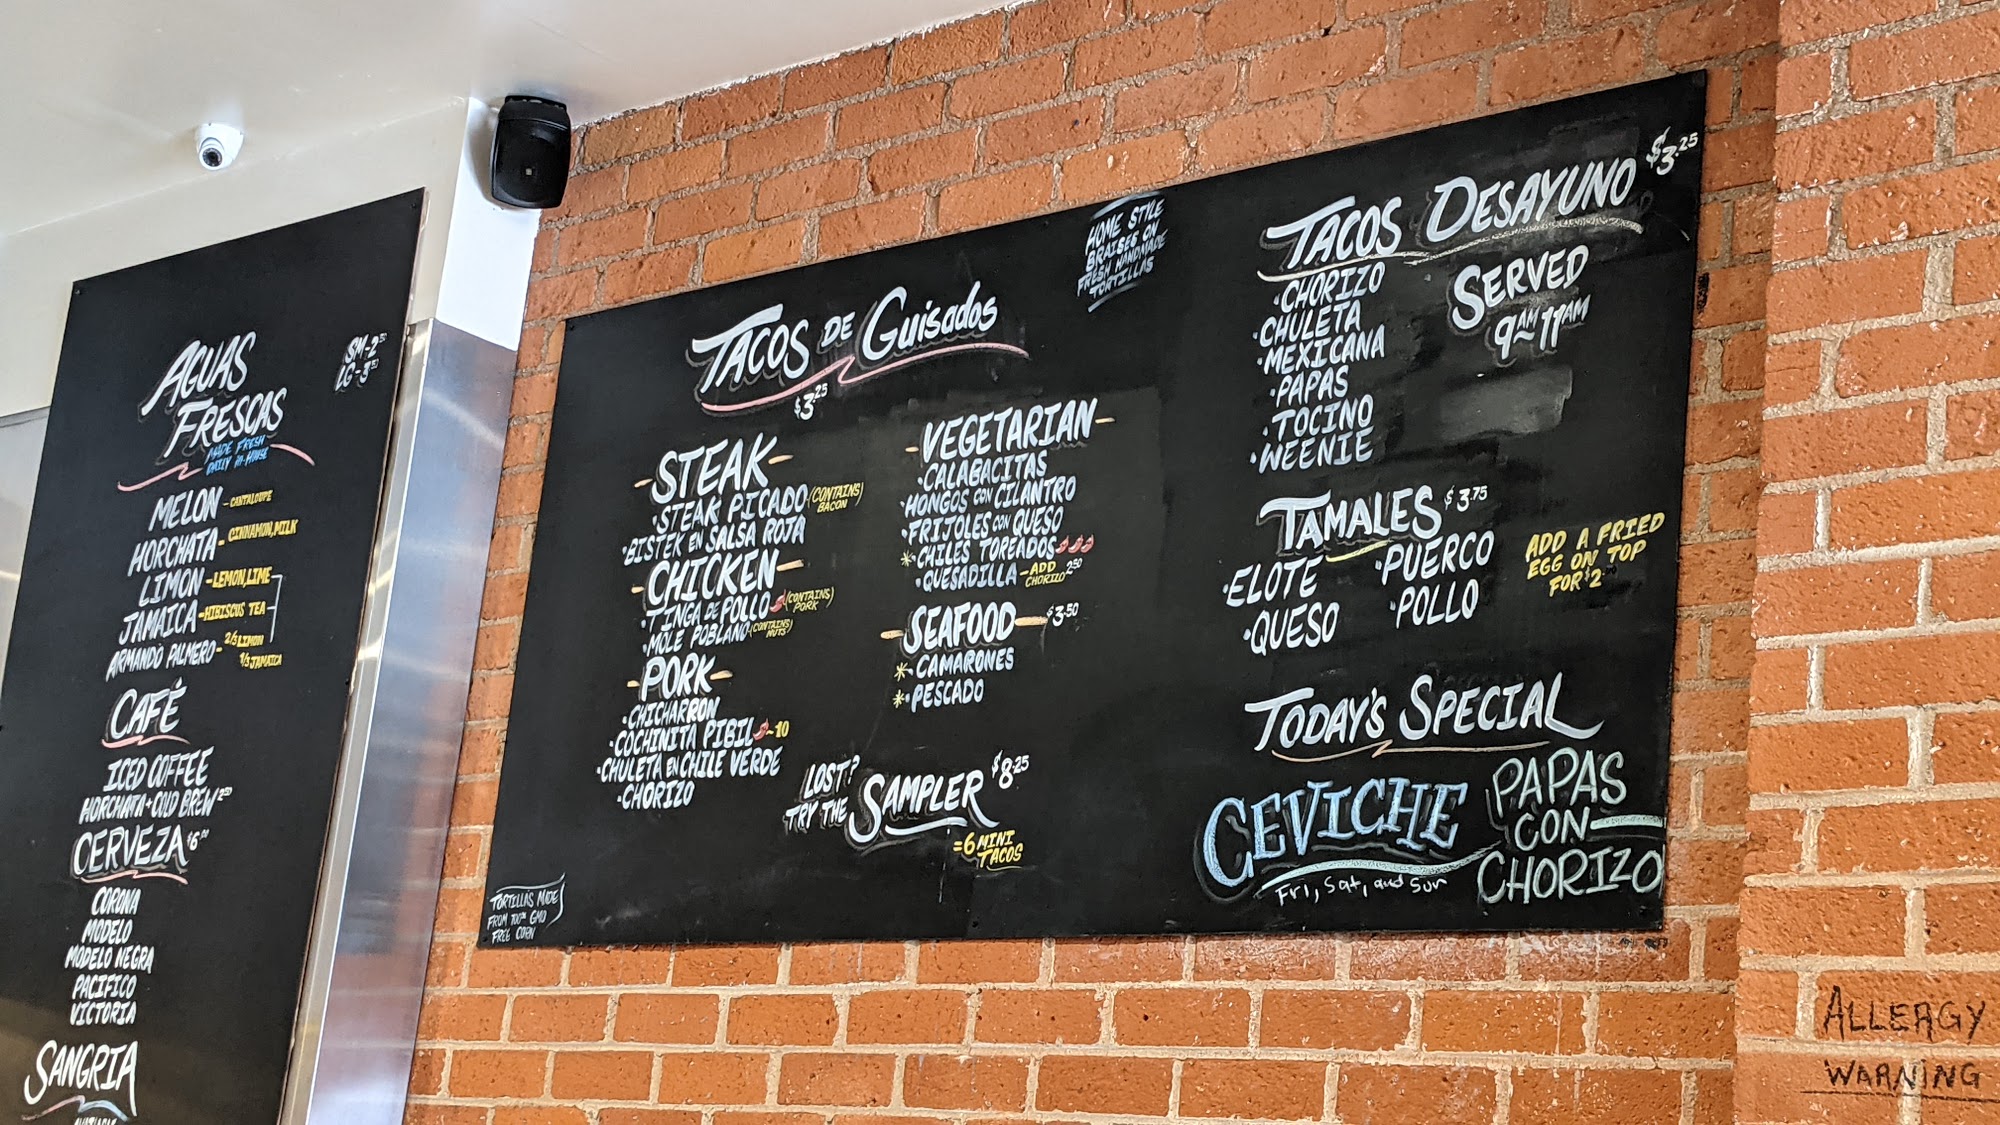 AGUAS
FRESCAS
MADE FRESH
DAILY IN-HOUSE
SM-2.50
LG-3.50
MELON - CANTALOUPE
HORCHATA - CINNAMON, MILK
LIMON - LEMON, LIME
JAMAICA - HIBISCUS TEA
ARMANDO PALMERO - 2/3 LIMON
1/3 JAMAICA
CAFÉ
ICED COFFEE
HORCHATA + COLD BREW 2.50
CERVEZA $6.00
CORONA
MODELO
MODELO NEGRA
PACIFICO
VICTORIA
SANGRIA
TACOS DE GUISADOS
$3.25
HOME STYLE
BRAISES ON
FRESH HANDMADE
TORTILLAS
-STEAK-
·STEAK PICADO (CONTAINS)
BACON
·BISTEK EN SALSA ROJA
-CHICKEN-
·TINGA DE POLLO (CONTAINS)
PORK
·MOLE POBLANO (CONTAINS)
NUTS
-PORK-
·CHICHARRON
·COCHINITA PIBIL ~10
·CHULETA EN CHILE VERDE
·CHORIZO
-VEGETARIAN-
·CALABACITAS
·HONGOS CON CILANTRO
·FRIJOLES CON QUESO
*·CHILES TOREADOS
·QUESADILLA - ADD
CHORIZO 2.50
-SEAFOOD- $3.50
*·CAMARONES
*·PESCADO
LOST?
TRY THE SAMPLER $8.25
=6 MINI
TACOS
TORTILLAS MADE
FROM 100% GMO
FREE CORN
TACOS DESAYUNO $3.25
·CHORIZO
·CHULETA
·MEXICANA
·PAPAS
·TOCINO
·WEENIE
SERVED
9AM 11AM
TAMALES $3.75
·ELOTE
·QUESO
·PUERCO
·POLLO
ADD A FRIED
EGG ON TOP
FOR $2
TODAY'S SPECIAL
CEVICHE
Fri, Sat, and Sun
PAPAS
CON
CHORIZO
ALLERGY
WARNING